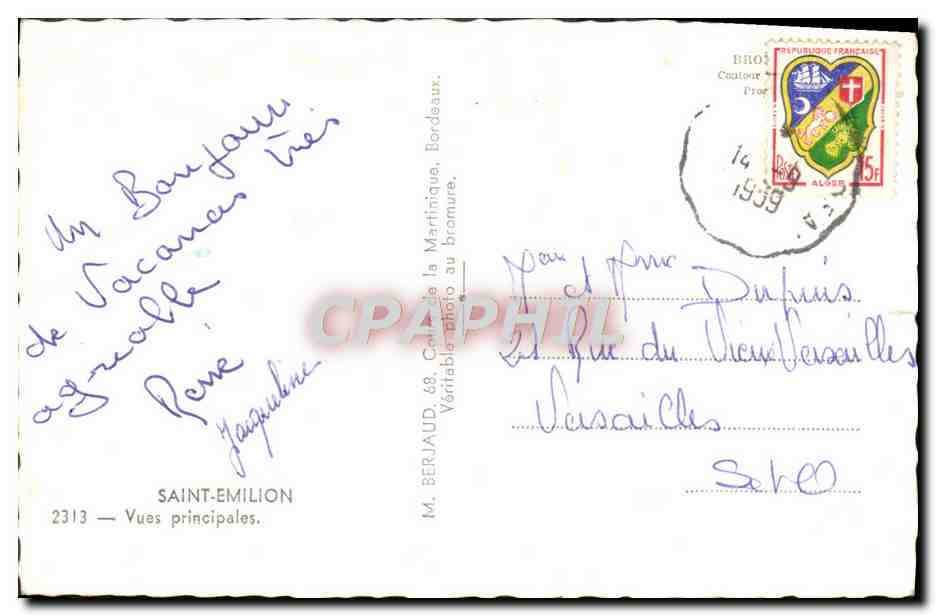 Un Bonjour
de Vacances très
agréable
Pierre
Jacqueline
SAINT-EMILION
2313 — Vues principales.
M. BERJAUD, 68, Cours de la Martinique, Bordeaux.
Véritable photo au bromure.
BRO
Contour
Pro
REPUBLIQUE FRANÇAISE
POSTES
15F
ALGER
14
1959
et Dupuis
21 Rue du Vieux Versailles
Versailles
S et O
CPAPHIL